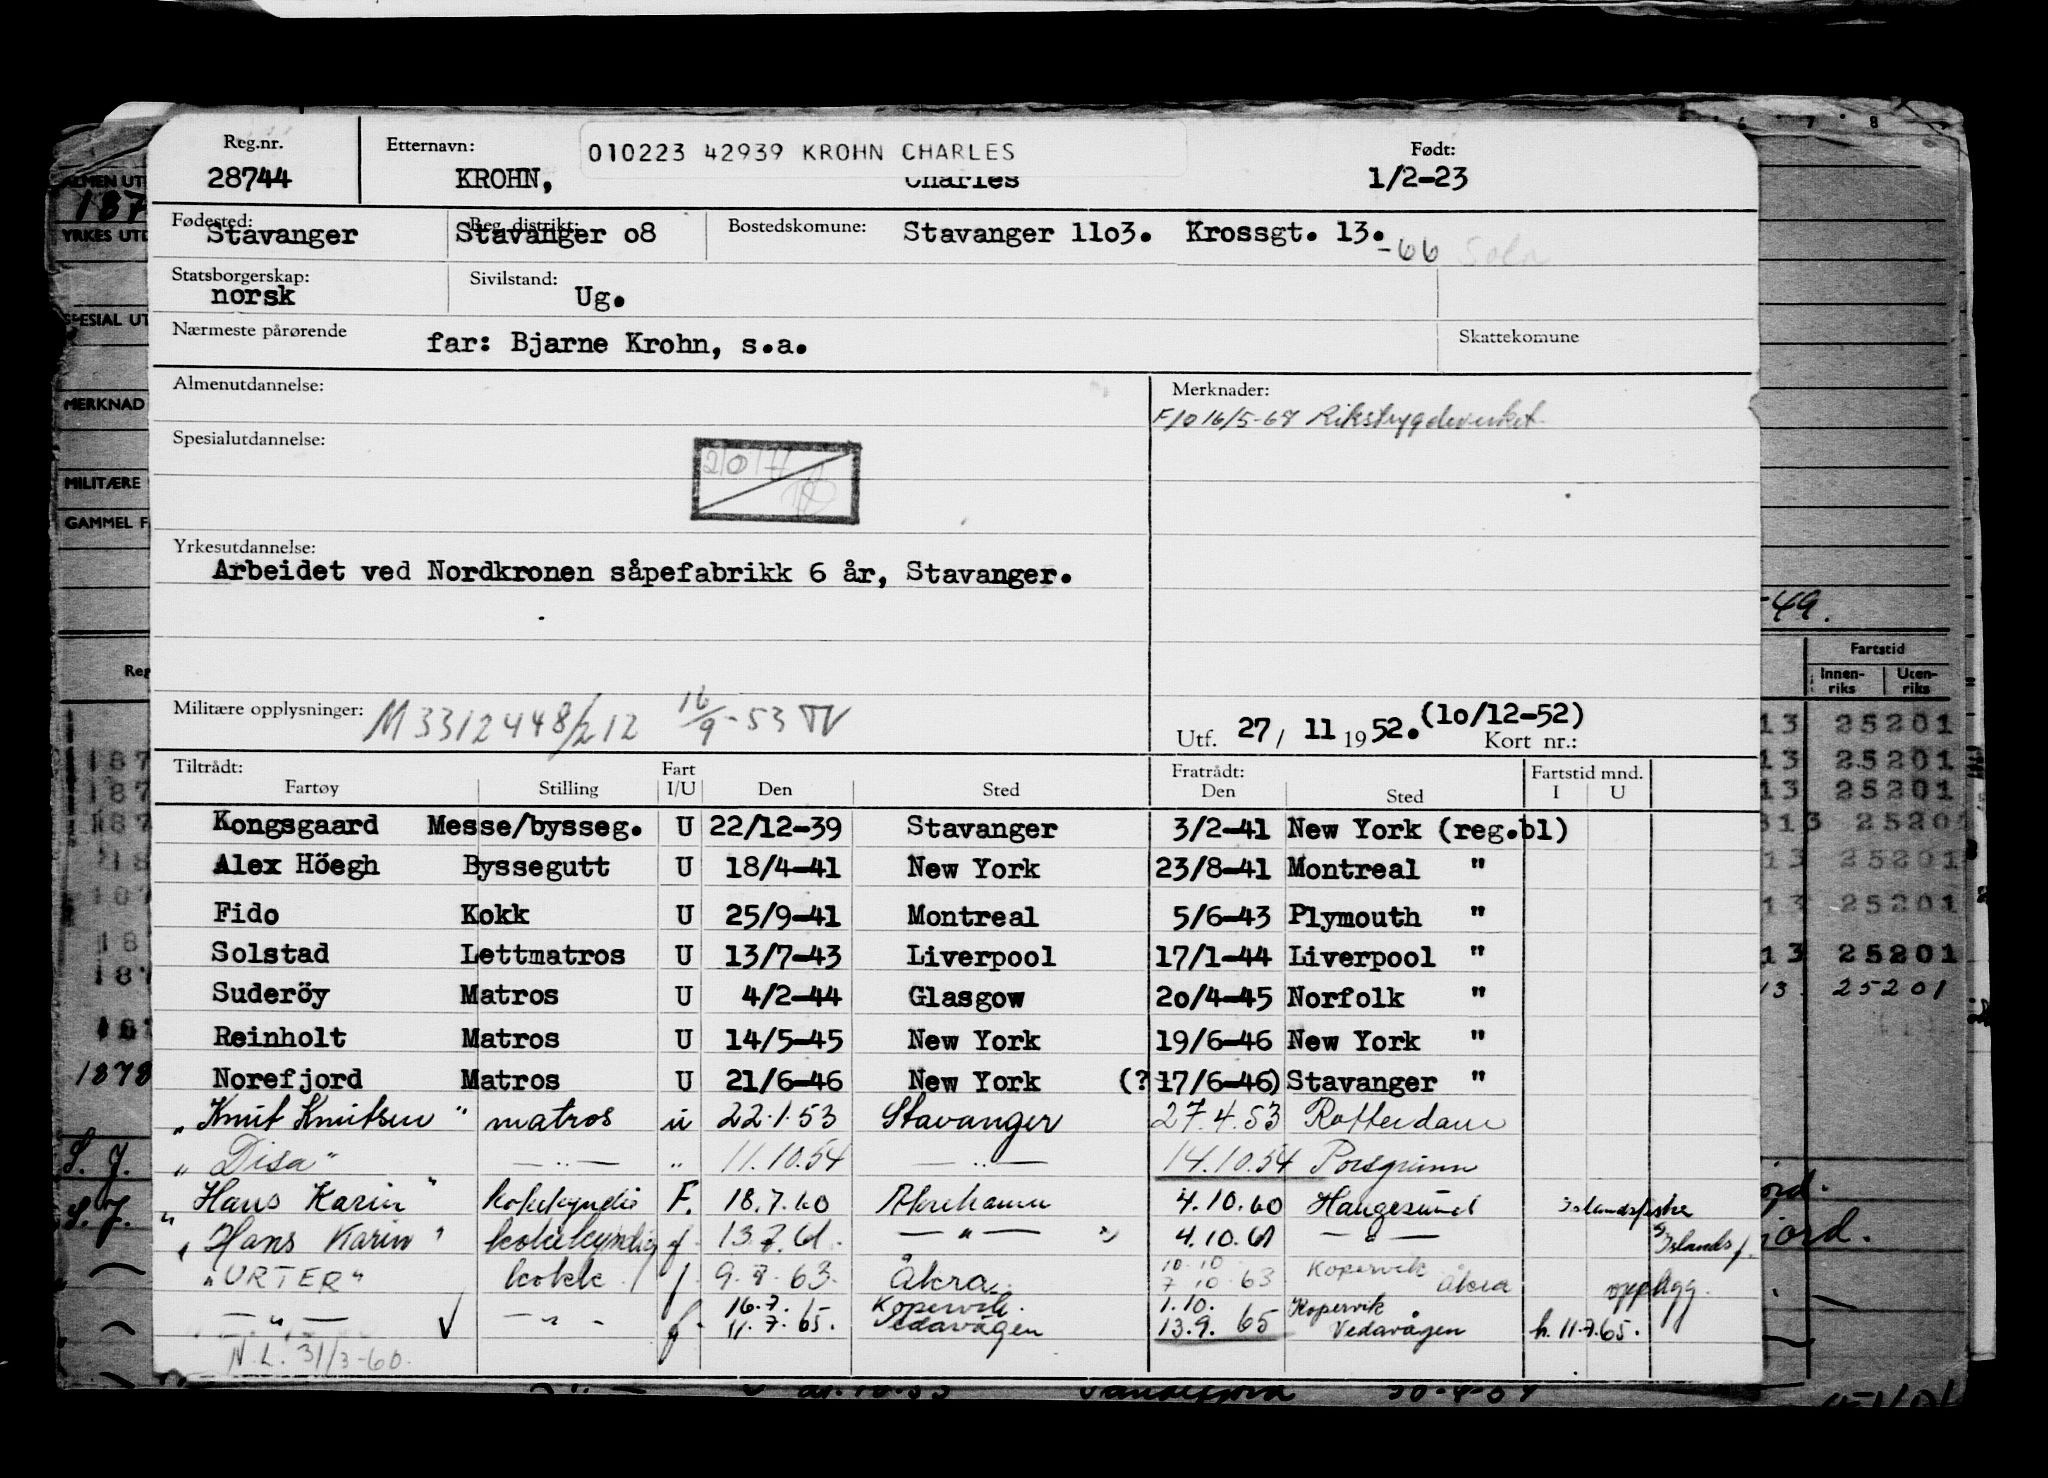 Reg.nr. Etternavn: 010223 42939 KROHN CHARLES Født:
28744 KROHN, Charles 1/2-23
Fødested: Reg. distrikt: Bostedskomune:
Stavanger Stavanger o8 Stavanger 11o3. Krossgt. 13.
-66 Sola
Statsborgerskap: Sivilstand:
norsk Ug.
Nærmeste pårørende far: Bjarne Krohn, s.a. Skattekomune
Almenutdannelse: Merknader:
F/0 16/5-68 Rikstrygdeverket
Spesialutdannelse:
Yrkesutdannelse:
Arbeidet ved Nordkronen såpefabrikk 6 år, Stavanger.
Militære opplysninger: M 3312448/212 16/9-53 TV
Utf. 27/ 11 1952. (1o/12-52) Kort nr.:
Tiltrådt: Fart Fratrådt: Fartstid mnd.
Fartøy Stilling I/U Den Sted Den Sted I U
Kongsgaard Messe/bysseg. U 22/12-39 Stavanger 3/2-41 New York (reg.bl)
Alex Höegh Byssegutt U 18/4-41 New York 23/8-41 Montreal "
Fido Kokk U 25/9-41 Montreal 5/6-43 Plymouth "
Solstad Lettmatros U 13/7-43 Liverpool 17/1-44 Liverpool "
Suderöy Matros U 4/2-44 Glasgow 2o/4-45 Norfolk "
Reinholt Matros U 14/5-45 New York 19/6-46 New York "
Norefjord Matros U 21/6-46 New York (?17/6-46) Stavanger "
"Knut Knutsen" matros u 22.1.53 Stavanger 27.4.53 Rotterdam
"Disa" — " — " 11.10.54 — " — 14.10.54 Porsgrunn
"Hans Karin" kokkyndig F. 18.7.60 Åkrehamn 4.10.60 Haugesund Islandsfiske
"Hans Karin" kokkekyndig f 13.7.61. — " — 4.10.61 — " — Islandsf.
"URTER" kokk f 9.8.63. Åkra 10.10 7.10.63 Kopervik Åkra opplagg.
— " — — " — f. 16.7. 11.7.65. Kopervik. Vedavågen 1.10. 13.9. 65 Kopervik Vedavågen h. 11.7.65.
N.L. 31/3-60.
YRKES UTD
SPESIAL UT
MERKNAD
MILITÆRE
GAMMEL F
-49.
Fartstid
Innen-riks Uten-riks
13 25201
13 25201
13 25201
313 25201
13 25201
13 25201
13 25201
13. 25201
187
187
187
187
187
1878
S. J.
S. J.